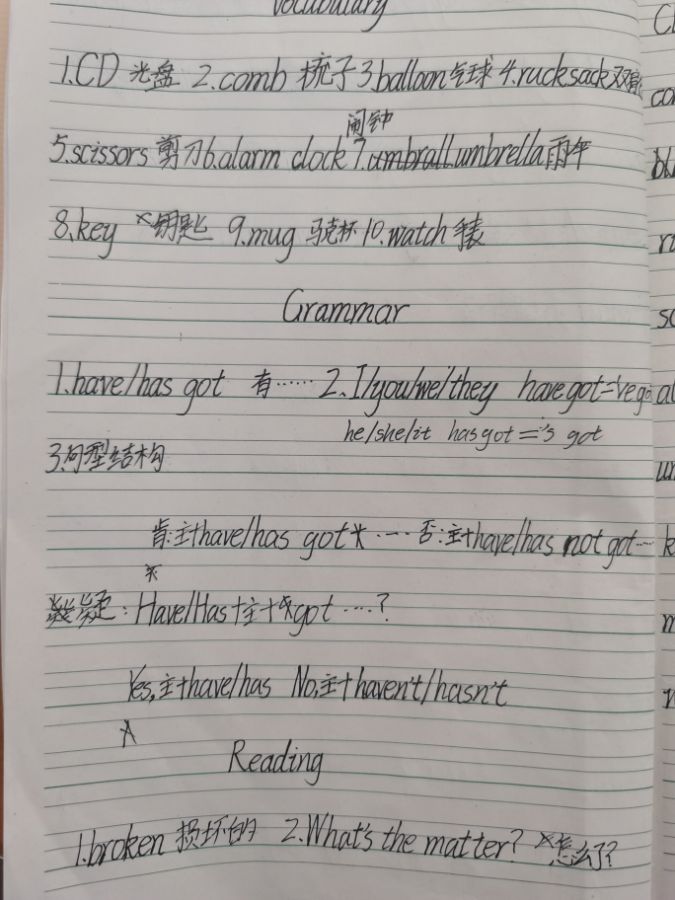 Vocabulary
1.CD 光盘 2.comb 梳子 3.balloon 气球 4.rucksack 双肩
闹钟
5.scissors 剪刀 6.alarm clock 7.umbrall umbrella 雨伞
8.key 钥匙 9.mug 马克杯 10.watch 手表
Grammar
1.have/has got 有…… 2.I/you/we/they have got='ve go
he/she/it has got='s got
3.句型结构
肯:主+have/has got … 否:主+have/has not got…
疑: Have/Has+主+got ……?
Yes,主+have/has No,主+haven't/hasn't
Reading
1.broken 损坏的 2.What's the matter? 怎么了?